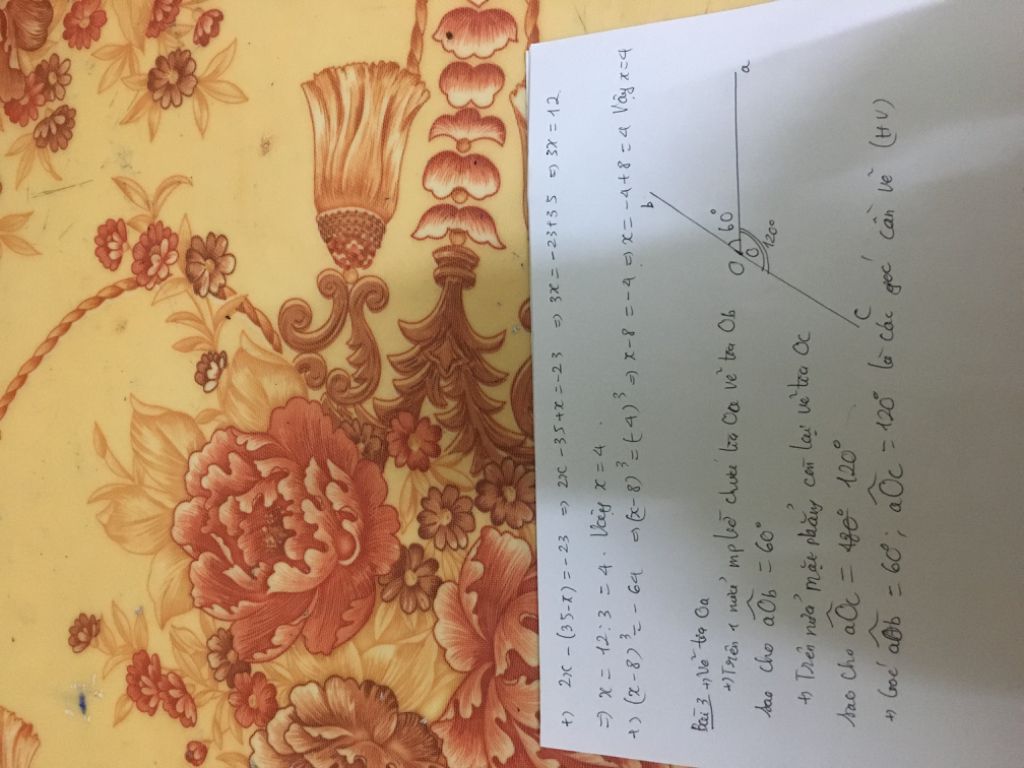 +) 2x - (35-x) = -23 => 2x - 35 + x = -23 => 3x = -23+35 => 3x = 12
=> x = 12 : 3 = 4. Vậy x = 4.
+) (x-8)³ = -64 => (x-8)³ = (-4)³ => x-8 = -4. => x = -4+8 = 4 Vậy x=4
Bài 3 +) Vẽ tia Oa
+) Trên 1 nửa mp bờ chứa tia Oa vẽ tia Ob
sao cho aOb = 60°
+) Trên nửa mặt phẳng còn lại vẽ tia Oc
sao cho aOc = 120°
+) Góc aOb = 60°; aOc = 120° là các góc cần vẽ (HV)
b
O 60° a
120°
C